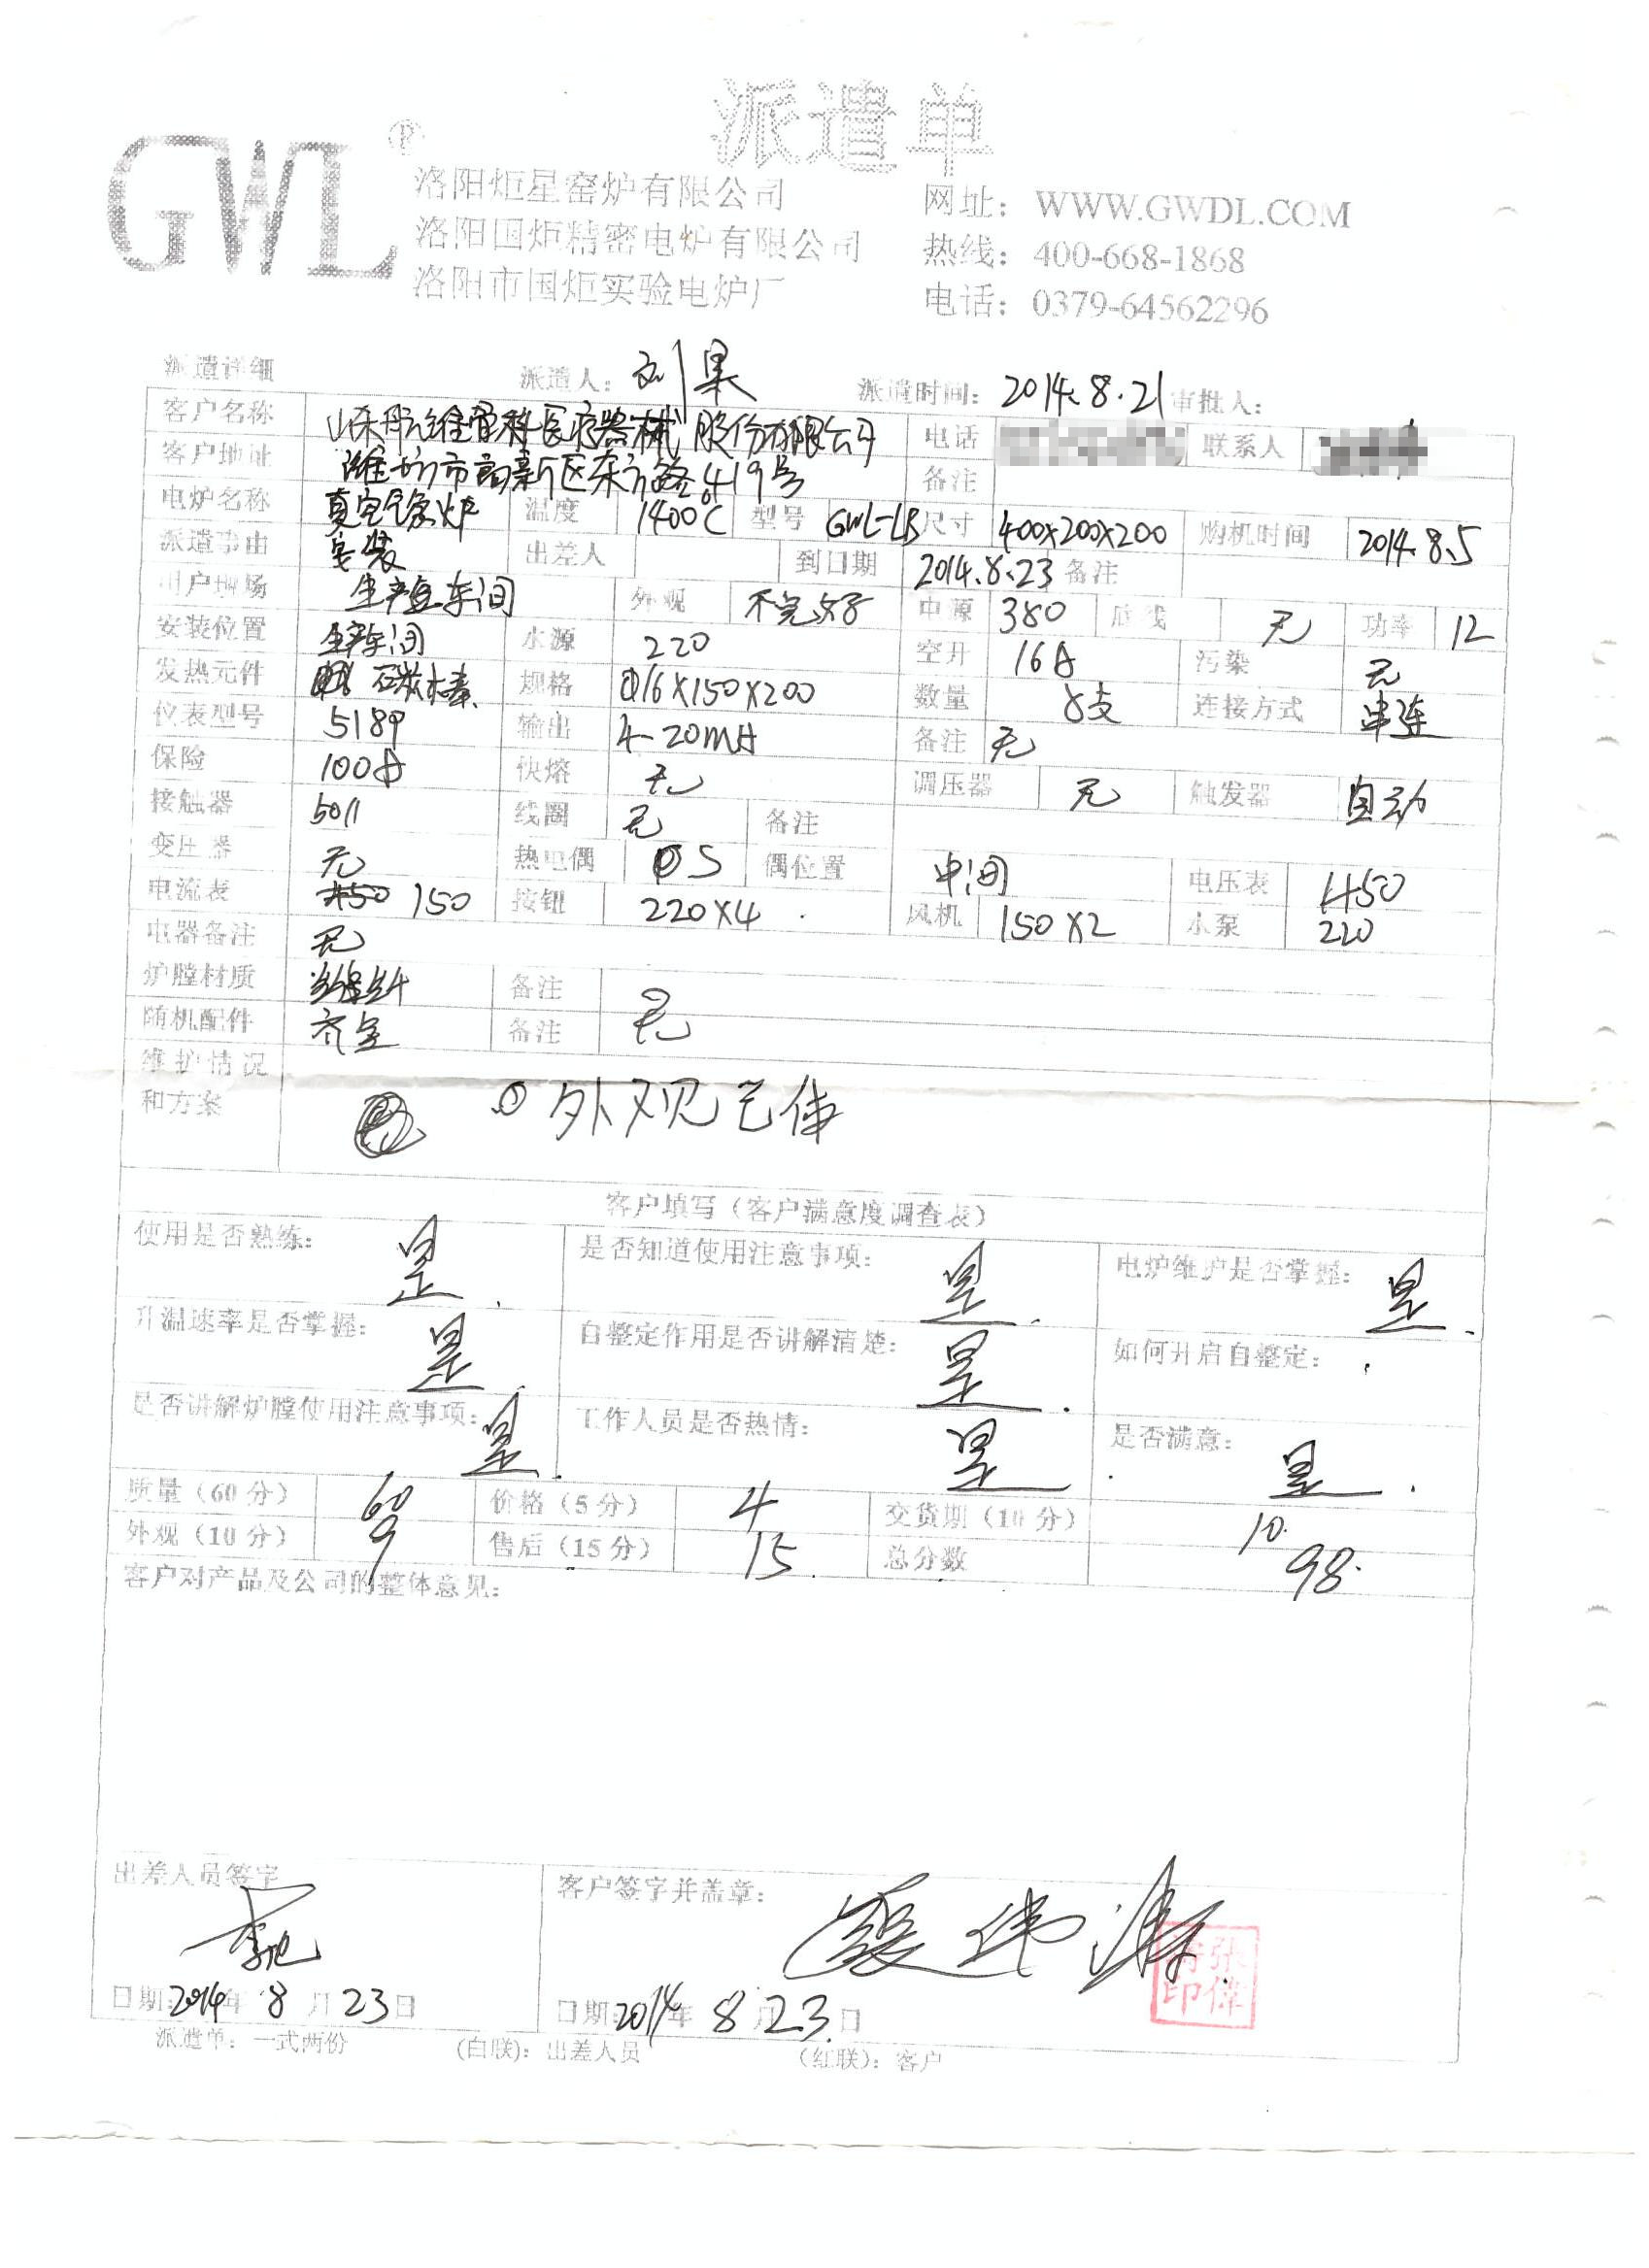 派遣单
GWL®
洛阳炬星窑炉有限公司 网址：WWW.GWDL.COM
洛阳国炬精密电炉有限公司 热线：400-668-1868
洛阳市国炬实验电炉厂 电话：0379-64562296
派遣详细 派遣人：刘果 派遣时间：2014.8.21 审批人：
客户名称 山东航维骨科医疗器械股份有限公司 电话 联系人
客户地址 潍坊市高新区东方路419号 备注
电炉名称 真空气氛炉 温度 1400℃ 型号 GWL-LB 尺寸 400x200x200 购机时间 2014.8.5
派遣事由 安装 出差人 到日期 2014.8.23 备注
用户现场 生产车间 外观 不完好 电源 380 底线 无 功率 12
安装位置 生产车间 水源 220 空开 16A 污染 无
发热元件 硅碳棒 规格 Φ16X150X200 数量 8支 连接方式 串连
仪表型号 518P 输出 4-20mA 备注 无
保险 100A 快熔 无 调压器 无 触发器 自动
接触器 5011 线圈 无 备注
变压器 无 热电偶 S 偶位置 中间 电压表 450
电流表 150 按钮 220X4 风机 150X2 水泵 220
电器备注 无
炉膛材质 备注 无
随机配件 齐全 备注 无
维护情况
和方案 ① 外观
客户填写（客户满意度调查表）
使用是否熟练：是. 是否知道使用注意事项：是. 电炉维护是否掌握：是.
升温速率是否掌握：是. 自整定作用是否讲解清楚：是. 如何开启自整定：.
是否讲解炉膛使用注意事项：是. 工作人员是否热情：是. 是否满意：是.
质量（60分） 60 价格（5分） 4 交货期（10分） 10.
外观（10分） 9 售后（15分） 15. 总分数 98.
客户对产品及公司的整体意见：
出差人员签字 客户签字并盖章：
张
印伟
日期：2014年8月23日 日期：2014年8月23日
派遣单：一式两份 （白联）：出差人员 （红联）：客户